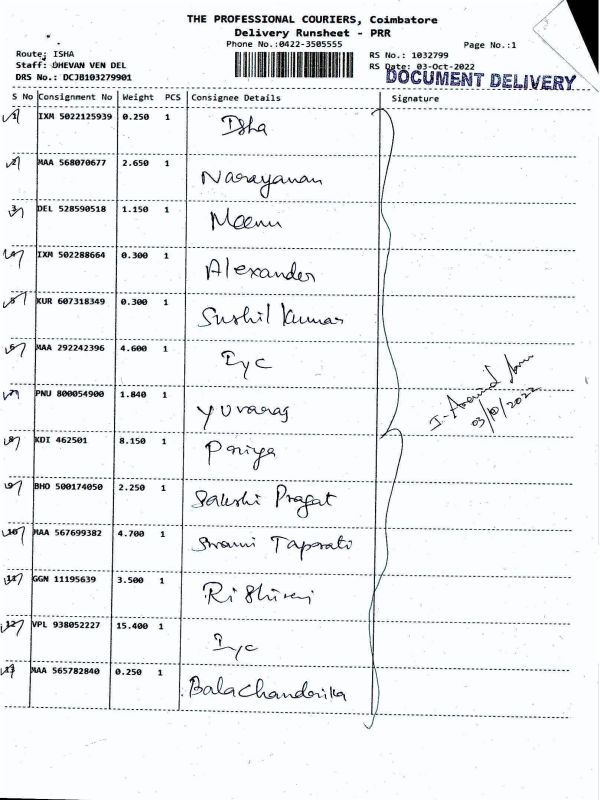 THE PROFESSIONAL COURIERS, Coimbatore
Delivery Runsheet - PRR
Phone No.:0422-3505555
Page No.:1
Route: ISHA
RS No.: 1032799
Staff: JHEVAN VEN DEL
RS Date: 03-Oct-2022
DRS No.: DCJB103279901
DOCUMENT DELIVERY
S No Consignment No Weight PCS Consignee Details Signature
1 IXM 5022125939 0.250 1 Isha
2 MAA 568070677 2.650 1 Narayanan
3 DEL 528590518 1.150 1 Meenu
4 IXM 502288664 0.300 1 Alexander
5 KUR 607318349 0.300 1 Sushil Kumar
6 MAA 292242396 4.600 1 Iyc
7 PNU 800054900 1.840 1 Yuvaraj
03/10/2022
8 KDI 462501 8.150 1 Priya
9 BHO 500174050 2.250 1 Sakshi Pragat
10 MAA 567699382 4.700 1 Swami Taporati
11 GGN 11195639 3.500 1
12 VPL 938052227 15.400 1 Iyc
13 MAA 565782840 0.250 1 Balachandrika